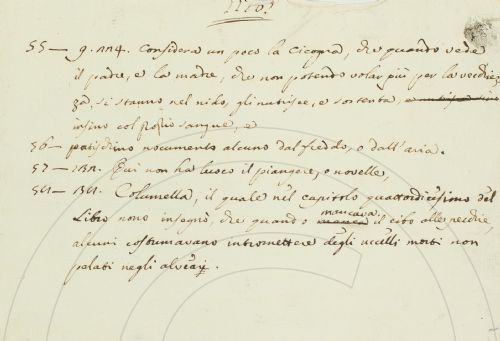 55 — g. 114. Considera un poco la Cicogna, che quando vede
il padre, e la madre, che non potendo volar più per la vecchiez
za, si stanno nel nido, gli nutrisce, e sostenta,
insino col proprio sangue, e
56 — patischino nocumento alcuno dal freddo, o dall'aria.
57 — Qui non ha luoco il piangere, o novelle,
Columella, il quale nel capitolo quattordicesimo del
Libro nono insegnò, che quando mancava il cibo alle pecchie,
alcuni costumavano intromettere degli uccelli morti non
pelati negli alveari.